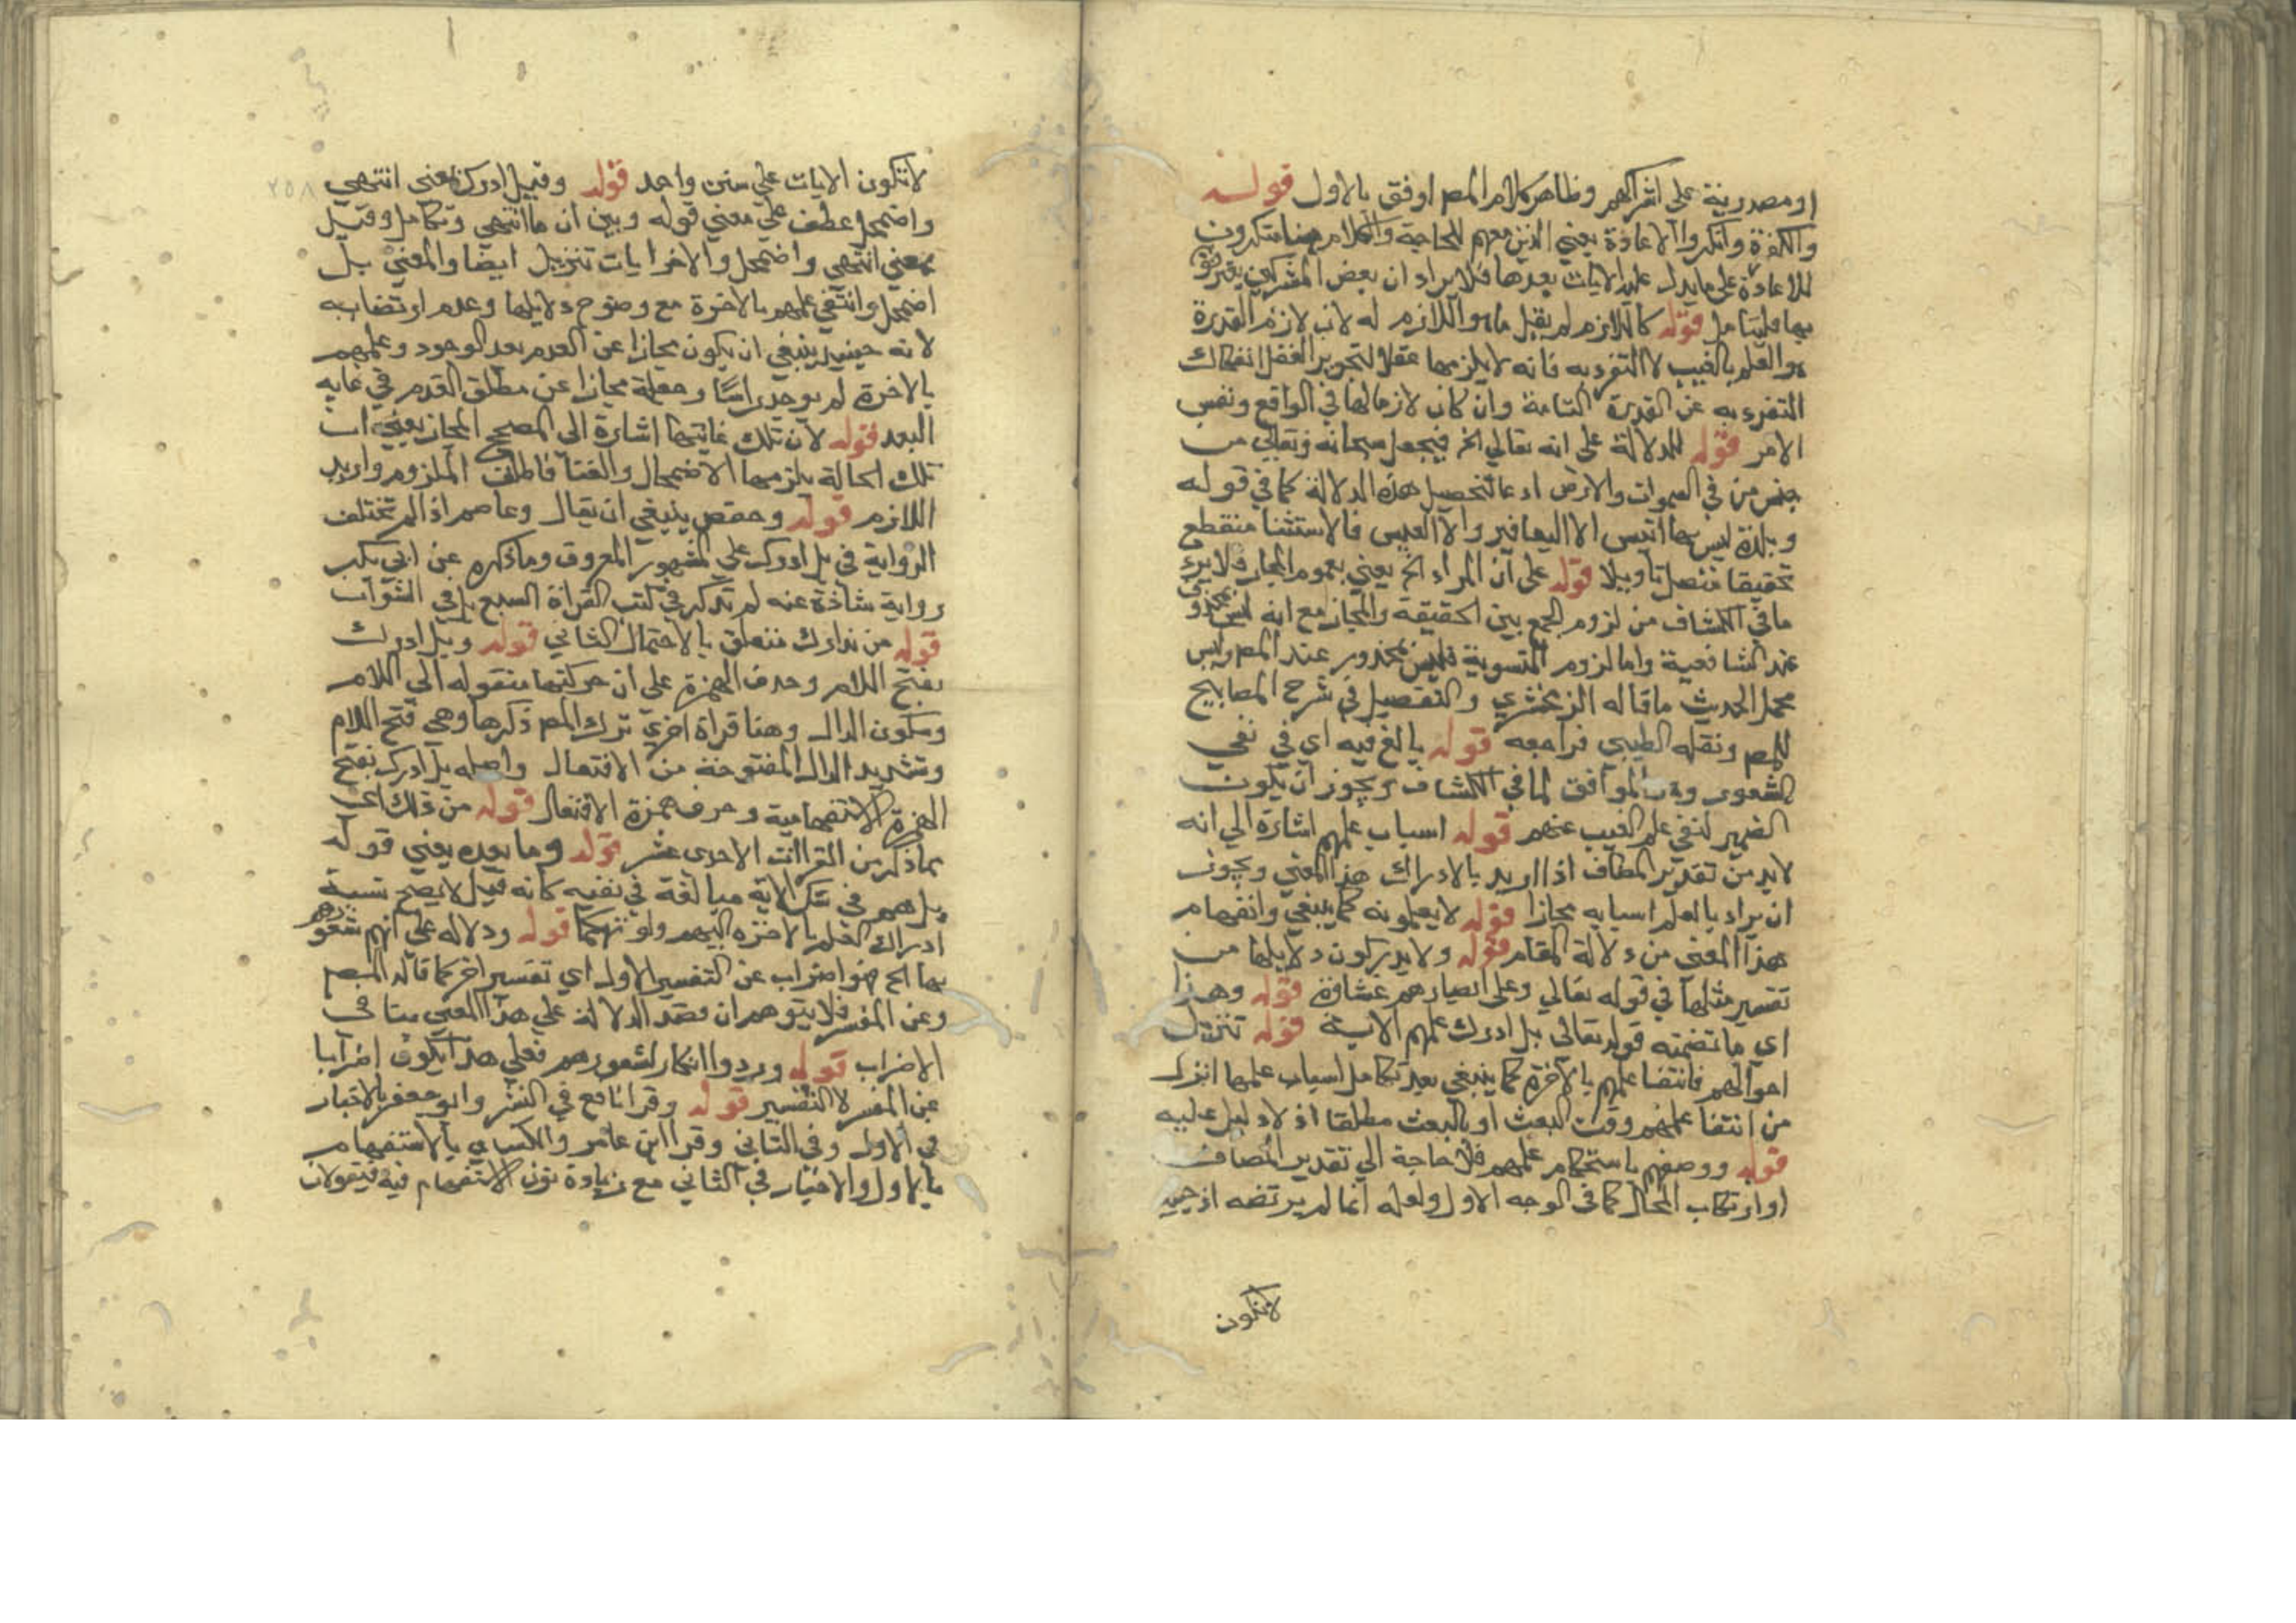 او مصدرية على اشراكهم وظاهر كلام المص اوفق بالاول قوله
والكفرة وانكروا الاعادة يعني الذين معهم المحاجة والكلام منكرون
للاعادة على ما يدل عليه الايات بعدها فلا يراد ان بعض المشركين يعترفون
بها فليتامل قوله كاللازم لم يقل ما هو اللازم له لان لازم القدرة
هو العلم بالغيب لا التفرد به فانه لا يلزمها عقلا لتجويز العقل انفكاك
التفرد به عن القدرة التامة وان كان لازما لها في الواقع ونفس
الامر قوله للدلالة على انه تعالى الخ فيجعل سبحانه وتعالى من
جنس من في السموات والارض ادعا لتحصيل هذه الدلالة كما في قوله
وبلدة ليس بها انيس الا اليعافير والا العيس فالاستثنا منقطع
تحقيقا متصل تاويلا قوله على ان المراد الخ يعني بعموم المجاز فلا يرد
ما في الكشاف من لزوم الجمع بين الحقيقة والمجاز مع انه ليس بمحذور
عند الشافعية واما لزوم التسوية فليس بمحذور عند المص وليس
محمل الحديث ما قاله الزمخشري والتفصيل في شرح المصابيح
للمص ونقله الطيبي فراجعه قوله بالغ فيه اي في نفي
الشعور وهو الموافق لما في الكشاف ويجوز ان يكون
الضمير لنفي علم الغيب عنهم قوله اسباب علمهم اشارة الي انه
لابد من تقدير المضاف اذا اريد بالادراك هذا المعنى ويجوز
ان يراد بالعلم اسبابه مجازا قوله لا يعلمونه كما ينبغي وانفهام
هذا المعنى من دلالة المقام قوله ولا يدركون دلايلها من
تفسير مثلها في قوله تعالي وعلى ابصارهم غشاوة قوله وهذا
اي ما تضمنه قوله تعالى بل ادرك علمهم الاية قوله تنزيل
احوالهم فانتفا علمهم بالاخرة كما ينبغي بعد تكامل اسباب علمها انزل
من انتفا علمهم وقت البعث او بالبعث مطلقا اذ لا دليل عليه
قوله ووصفهم باستحكام علمهم فلا حاجة الي تقدير المضاف
او ارتكاب المجاز كما في الوجه الاول ولعله انما لم يرتضه اذ حينئذ
لا تكون
٢٥٨
لا تكون الايات على سنن واحد قوله وقيل ادرك بمعنى انتهى
واضمحل عطف على معني قوله وبين ان ما انتهي وتكامل وقيل
بمعني انتهي واضمحل والاخرايات تنزيل ايضا والمعنى بل
اضمحل وانتفي علمهم بالاخرة مع وضوح دلايلها وعدم ارتضابه
لانه حينيذ ينبغي ان يكون مجازا عن العدم بعد الوجود وعلمهم
بالاخرة لم يوجد راسا وجعله مجازا عن مطلق العدم في غاية
البعد قوله لان تلك غايتها اشارة الى المصحح المجاز يعني ان
تلك الحالة يلزمها الاضمحلال والفنا فاطلق الملزوم واريد
اللازم قوله وحفص ينبغي ان يقال وعاصم اذ لم تختلف
الرواية في بل ادرك على المشهور المعروف وما ذكره عن ابي بكر
رواية شاذة عنه لم تذكر في كتب القراة السبع بل في الشواذ
قوله من تدارك متعلق بالاحتمال الثاني قوله وبل ادرك
بفتح اللام وحذف الهمزة على ان حركتها منقوله الى اللام
وسكون الدال وهنا قراة اخرى ترك المص ذكرها وهي فتح اللام
وتشديد الدال المفتوحة من الافتعال واصله بل ادرك بفتح
الهمزة الاستفهامية وحذف همزة الافتعال قوله من ذلك اي
مما ذكر من القراات الاحدى عشر قوله وما بعده يعني قوله
بل هم في شك الاية مبالغة في نفيه كانه قيل لا يصح نسبة
ادراك العلم بالاخره اليهم ولو تهكما قوله ودلاله على انهم شعورهم
بها الخ فهو اضراب عن التفسير الاول اي تفسير اخر كما قاله المص
وعن المفسر فلا يتوهم ان قصد الدلالة على هذا المعني ينافي
الاضراب قوله وردوا انكار لشعورهم فعلي هذا يكون اضرابا
عن المفسر لا التفسير قوله وقرا نافع في النشر وابو جعفر بالاخبار
في الاول وفي الثاني وقرا ابن عامر والكساي بالاستفهام
بالاول والاخبار في الثاني مع زيادة نون الاستفهام فيه فيقولان